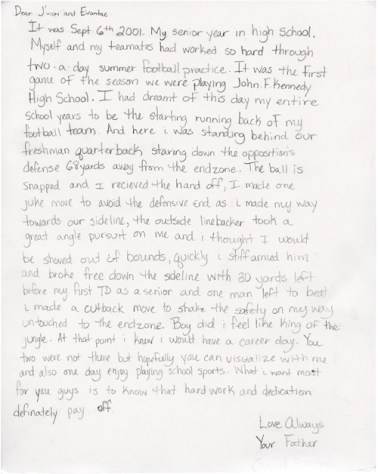 Dear J'von and Evontae
It was Sept 6th 2001. My senior year in high School.
Myself and my teamates had worked so hard through
two-a-day summer football practice. It was the first
game of the season we were playing John. F. Kennedy
High School. I had dreamt of this day my entire
school years to be the starting running back of my
football team. And here i was standing behind our
freshman quarterback staring down the opposition's
defense 68 yards away from the endzone. The ball is
snapped and I recieved the hand off, I made one
juke move to avoid the defensive end as i made my way
towards our sideline, the outside linebacker took a
great angle pursuit on me and i thought I would
be shoved out of bounds, quickly i stiff armed him
and broke free down the sideline with 30 yards left
before my first TD as a senior and one man left to beat
i made a cutback move to shake the safety on my way
untouched to the endzone. Boy did i feel like King of the
jungle. At that point i knew i would have a career day. You
two were not there but hopefully you can visualize with me
and also one day enjoy playing school sports. What i want most
for you guys is to know that hardwork and dedication
definately pay off.
Love Always
Your Father